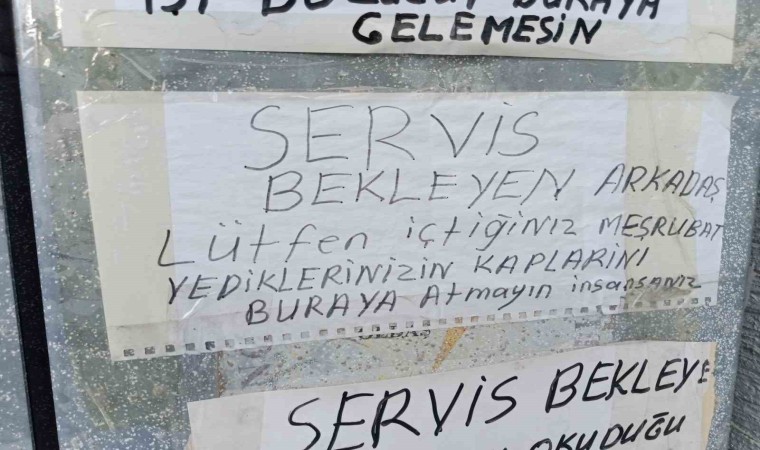 GELEMESİN
SERVİS
BEKLEYEN ARKADAŞ
Lütfen içtiğiniz MEŞRUBAT
YEDİKLERİNİZİN KAPLARINI
BURAYA Atmayın insansanız
SERVİS BEKLEYE
OKUDUĞU